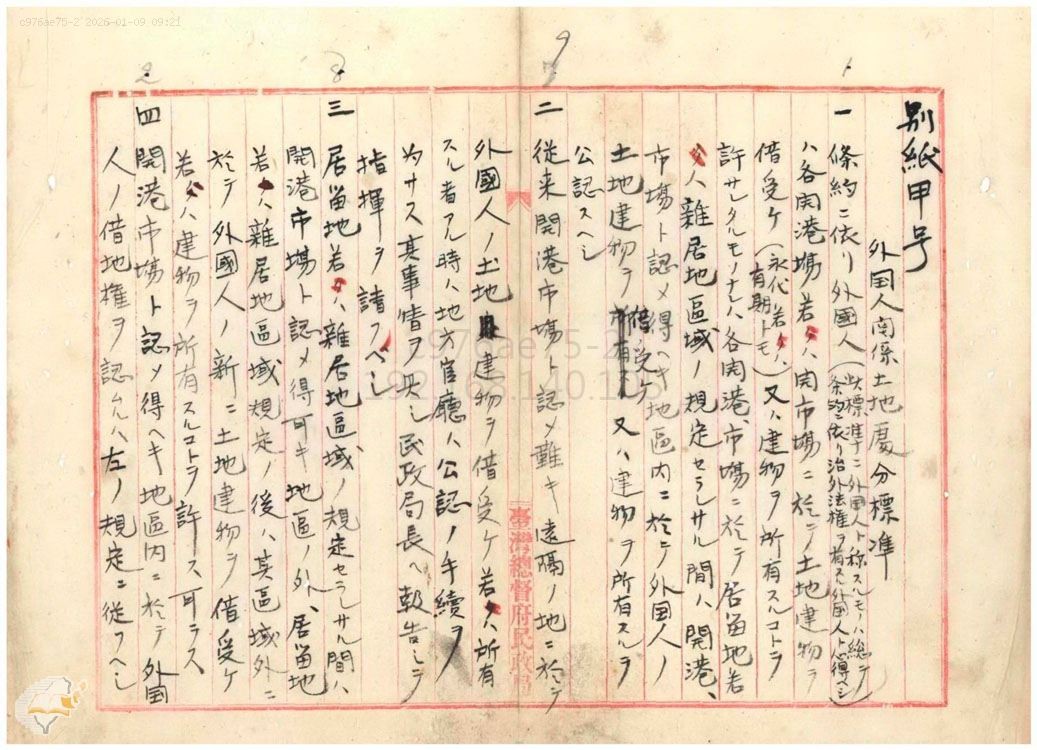 c976ae75-2 2026-01-09 09:21
別紙甲号
外国人関係土地處分標準
一 條約ニ依リ外國人(此標準ニ外国人ト称スルモノハ総テ条約ニ依リ治外法権ヲ有スル外国人ト心得ヘシ)
ハ各開港場若クハ開市場ニ於テ土地建物ヲ
借受ケ(永代若クハ有期トモ)又ハ建物ヲ所有スルコトヲ
許サレタルモノナレハ各開港、市場ニ於テ居留地若
クハ雜居地區域ノ規定セラレサル間ハ開港、
市場ト認メ得ヘキ地區内ニ於テ外国人ノ
土地建物ヲ借受ケ又ハ建物ヲ所有スルヲ
公認スヘシ
二 従来開港市場ト認メ難キ遠隔ノ地ニ於テ
外國人ノ土地建物ヲ借受ケ若クハ所有
スル者アル時ハ地方官廳ハ公認ノ手續ヲ
為サス其事情ヲ具シ民政局長ヘ報告シテ
指揮ヲ請フヘシ
三 居留地若クハ雜居地區域ノ規定セラレサル間ハ
開港市場ト認メ得可キ地區ノ外、居留地
若クハ雜居地區域規定ノ後ハ其區域外ニ
於テ外國人ノ新ニ土地建物ヲ借受ケ
若クハ建物ヲ所有スルコトヲ許ス可ラス
四 開港市場ト認メ得ヘキ地區内ニ於テ外国
人ノ借地權ヲ認ムルハ左ノ規定ニ従フヘシ
臺灣總督府民政局
c976ae75-2